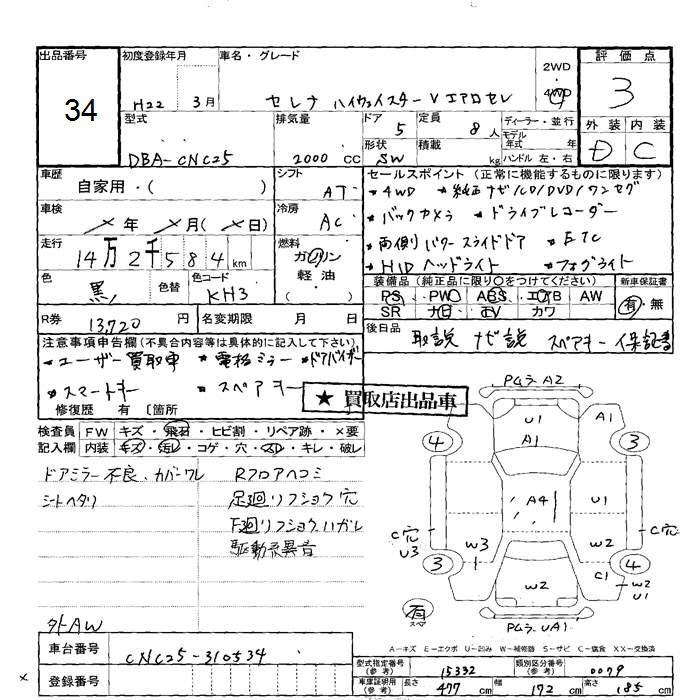 出品番号 初度登録年月 車名・グレード 2WD ・ 4WD 評価点
34 H22 3月 セレナ ハイウェイスターV エアロセレ 3
型式 排気量 ドア 5 定員 8人 ディーラー・並行 外装 内装
DBA-CNC25 2000 CC 形状 SW 積載 kg モデル年式 年 ハンドル 左・右 D C
車歴 自家用・( ) シフト AT セールスポイント (正常に機能するものに限ります)
*4WD *純正ナビ/CD/DVD/ワンセグ
車検 年 月( 日) 冷房 AC *バックカメラ *ドライブレコーダー
走行 14万2千584km 燃料 ガソリン 軽油 ( ) *両側パワースライドドア *ETC
*HIDヘッドライト *フォグライト
色 黒 色替 色コード KH3 装備品 (純正品に限り○をつけてください) 新車保証書
PS PW ABS エアB AW 有・無
SR ナビ TV カワ
R券 13,720円 名変期限 月 日 後日品 取説 ナビ説 スペアキー 保証書
注意事項申告欄(不具合内容等は具体的に記入して下さい)
*ユーザー買取車 *電格ミラー *ドアバイザー
*スマートキー *スペアキー
修復歴 有 〔箇所
★買取店出品車
検査員 FW キズ・飛石・ヒビ割・リペア跡・×要
記入欄 内装 キズ・汚レ・コゲ・穴・スレ・キレ・破レ
ドアミラー不良、カバーワレ Rフロアヘコミ
シートヘタリ 足廻リフショク穴
下廻リフショク、ハガレ
駆動系異音
外AW
PムラA2
U1 A1
A1
4 3
A4 U1
C穴 U3 W3 W2 C穴
3 C1 4 W2 U1
W2
有 スペア PムラUA1
A-キズ E-エクボ U-凹み W-補修跡 S-サビ C-腐食 XX-交換済
車台番号 CNC25-310534 型式指定番号(参考) 15332 類別区分番号(参考) 0079
× 登録番号 車庫証明用(参考) 長さ 477cm 幅 172cm 高さ 185cm